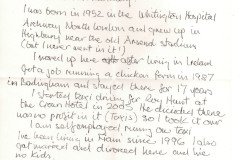 I was born in 1952 in the Whittington Hospital
Archway North London and grew up in
Highbury near the old Arsenal stadium
(but I never went in it!)
I moved up here after living in Ireland
Got a job running a chicken farm in 1987
in Badingham and stayed there for 17 years
I started taxi driving for Roy Hunt at
the Crown Hotel in 2003. He chucked there
was no profit in it (Taxis) So I took it over
I am self employed running one taxi
I've been living in Fram since 1996. I also
got married and divorced here and we
no kids